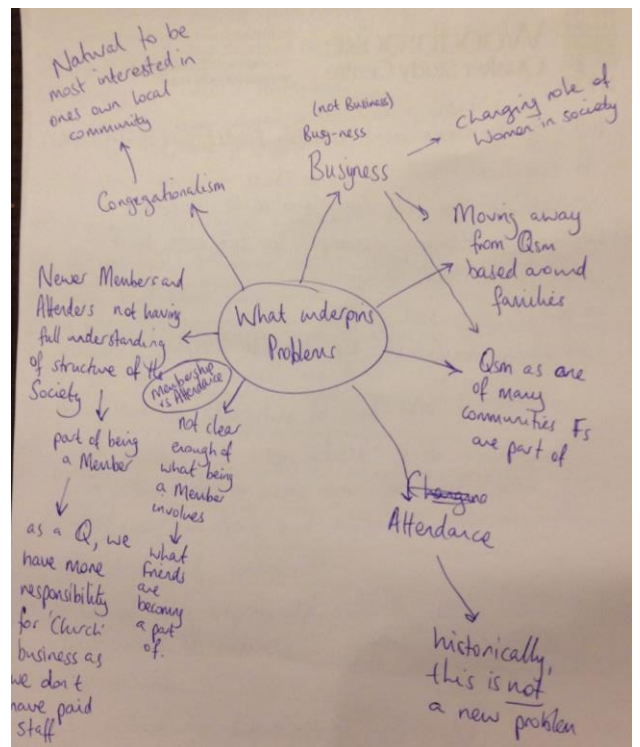 Natural to be
most interested in
ones own local
community
Congegationalism
(not Business)
Busy-ness
Busyness
Changing role of
Women in society
Moving away
from Qsm
based around
families
Qsm as one
of many
communities Fs
are part of
What underpins
Problems
Newer Members and
Attenders not having
full understanding
of structure of the
Society
part of being
a Member
as a Q, we
have more
responsibility
for 'Church'
business as
we don't
have paid
staff
Membership
vs Attendance
not clear
enough of
what being
a Member
involves
what
Friends
are
becoming
a part
of.
Changing
Attendance
historically,
this is not
a new problem